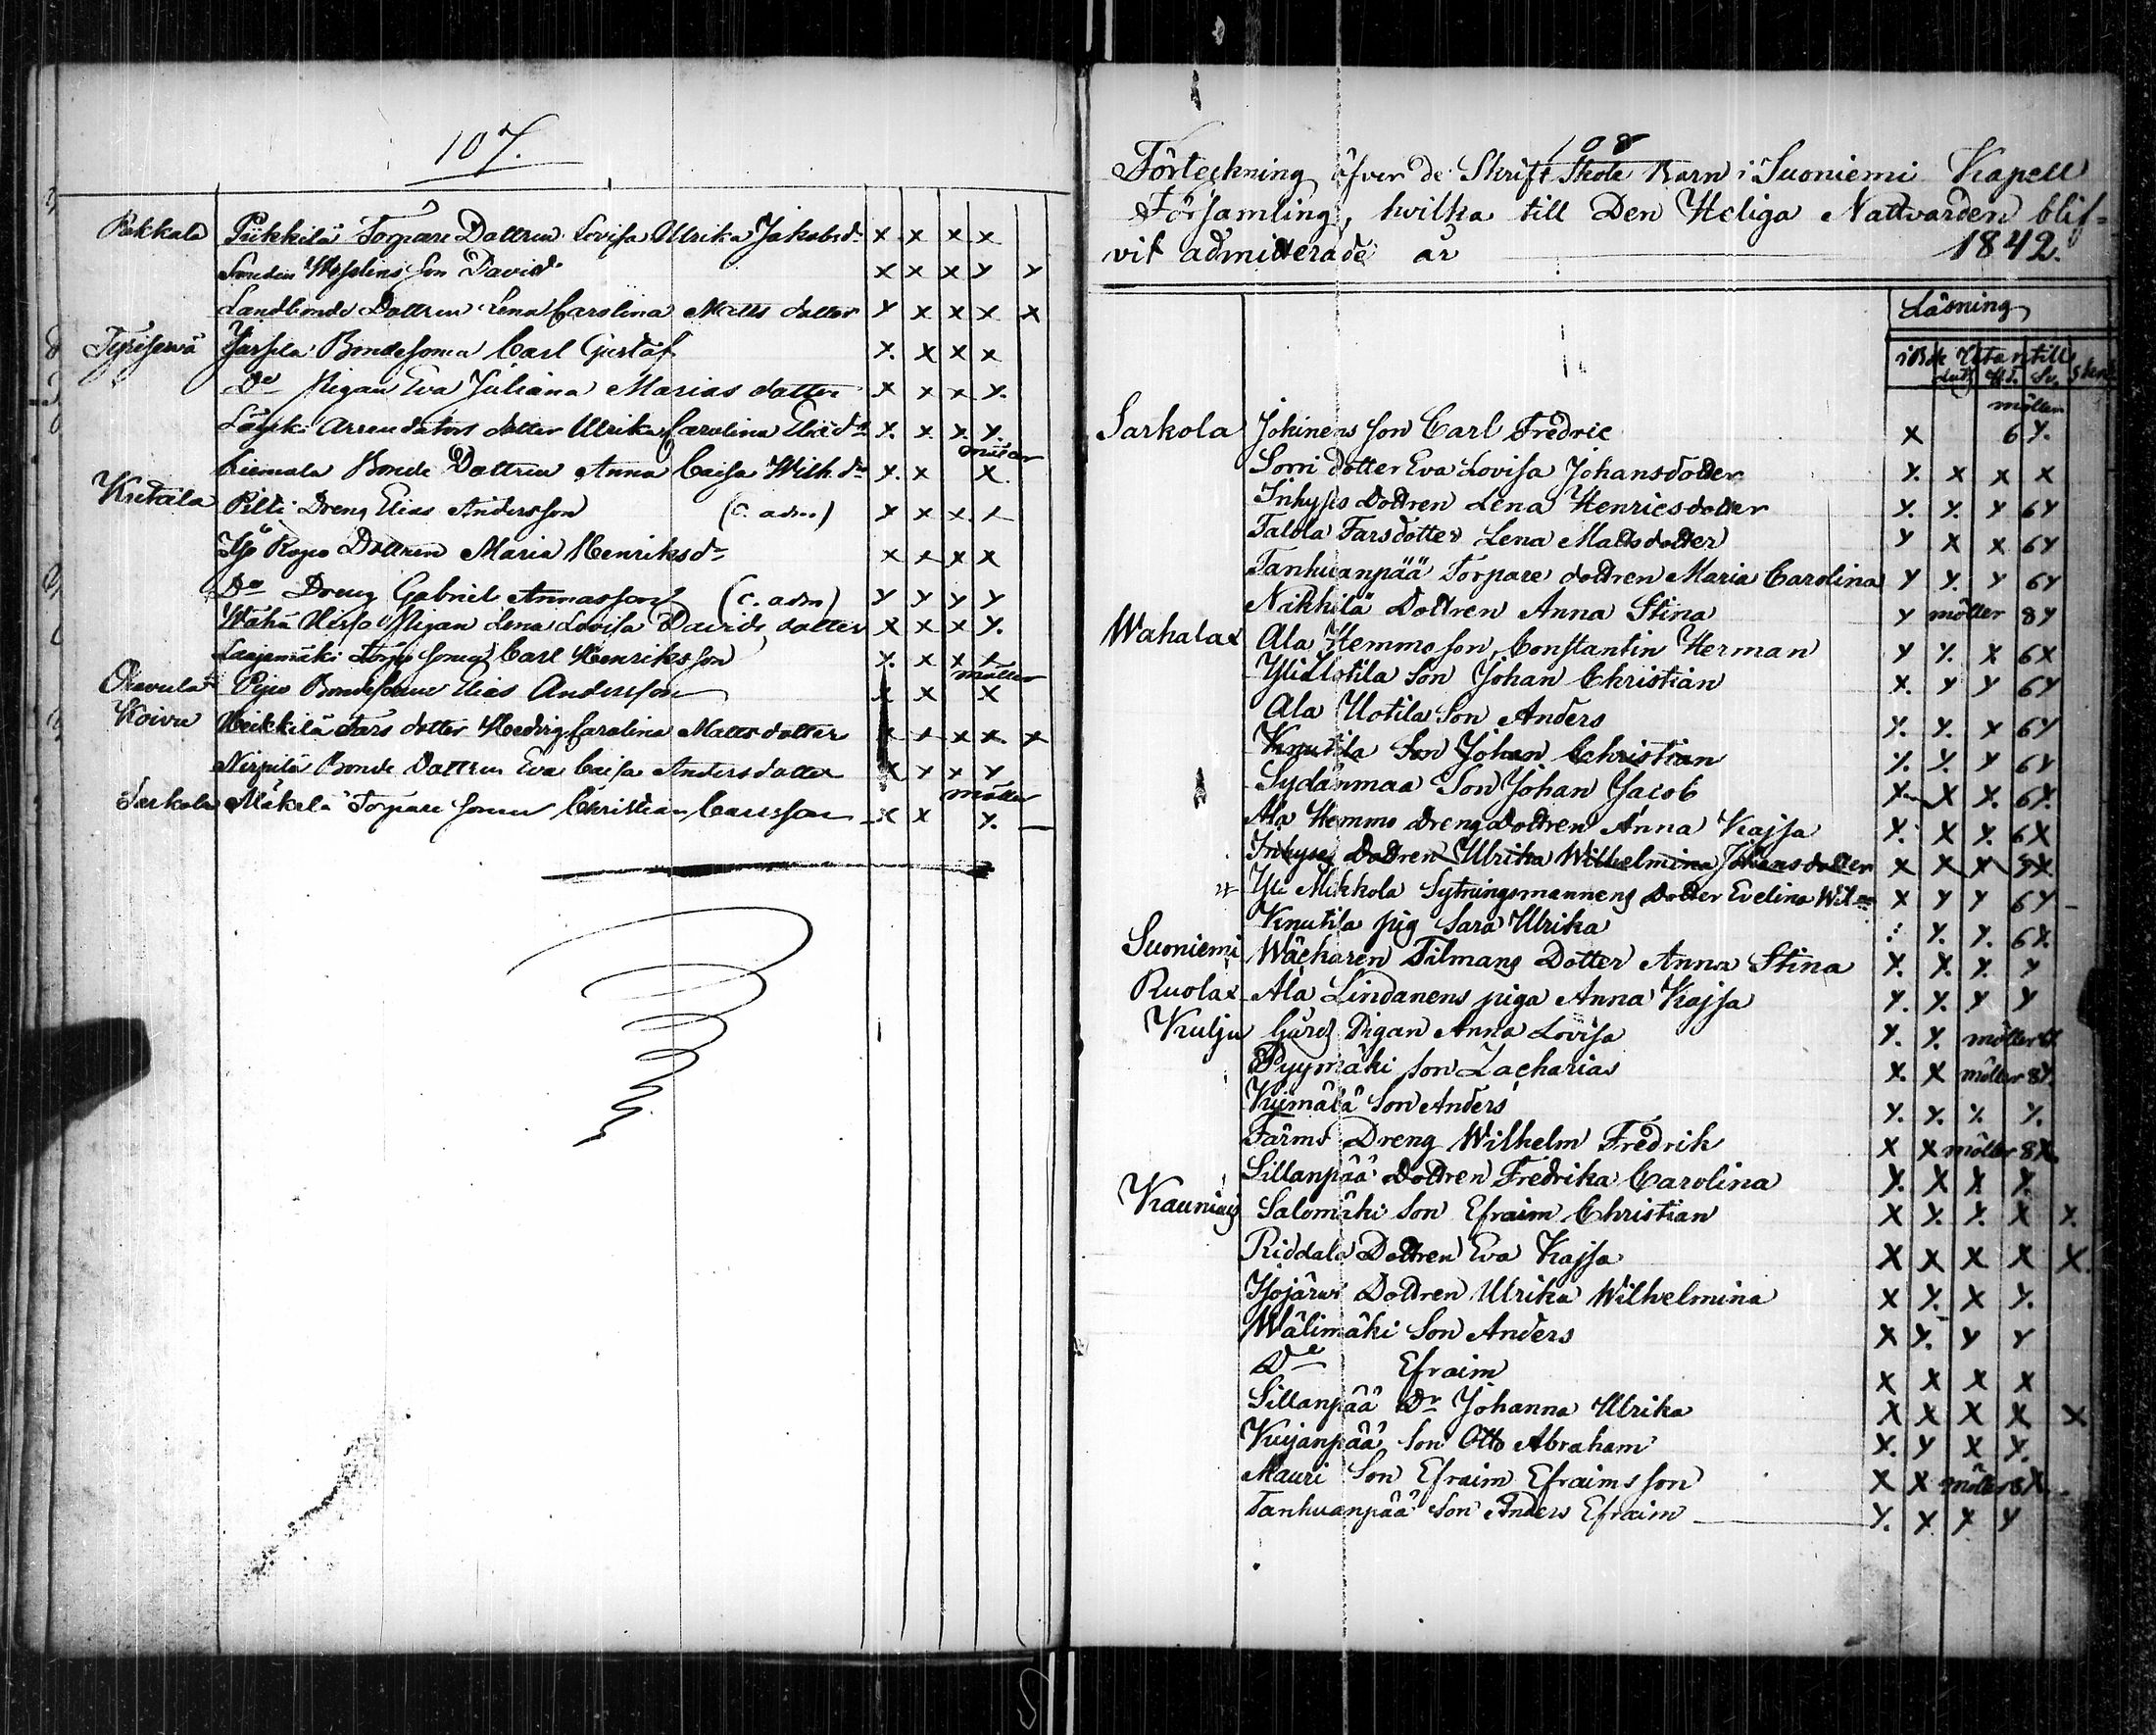 107.
Pakkala Piikkilä Torpare Dottren Lovisa Ulrika Jakobsd. x x x x
Smeden Son David x x x x x
Landbonde Dottren Lena Carolina Matts dotter x x x x x
Jarsila Bondesonen Carl Gustaf x x x x
Do Pigan Eva Juliana Marias dotter x x x x
Arrendators dotter Ulrika Carolina x x x x
möter
Bonde Dottren Anna Caisa Wilh. dr x x x
Pitti Dreng Elias Andersson (c. adm) x x x x
Dottren Maria Henriksdr x x x x
Do Dreng Gabriel Annasson (c. adm) x x x x
Wähä Pigan Lena Lovisa Davids dotter x x x x
Laajamäki Carl Henriksson x x x x
möller
Bondesonen Elias Andersson x x x
Koivu Heikkilä Fars dotter Hedvig Carolina Matts dotter x x x x x
Bonde Dottren Eva Caisa Anders dotter x x x x
möller
Sarkola Mäkelä Torpare Sonen Christian Carlsson x x x
108
Förteckning öfver de Skrift Skole Barn i Suoniemi Kapell
Församling, hvilka till Den Heliga Nattvarden blif=
vit admitterade år 1842.
Läsning
i Bok Utantill
möller
Sarkola Johinens son Carl Fredric x 6 x.
Sorri dotter Eva Lovisa Johansdotter x. x x x
Inhyses Dottren Lena Henricsdotter x. x. x 6x
Talola Farsdotter Lena Mattsdotter x x x 6x
Tanhuanpää Torpare dottren Maria Carolina x x. x 6x
Nikkilä Dottren Anna Stina x möller 8x
Wahalax Ala Hemmo son Constantin Herman x x. x 6x
Yli Uotila Son Johan Christian x. x x 6x
Ala Uotila Son Anders x. x. x 6x
Knutila Son Johan Christian x. x. x 6x
Sydänmaa Son Johan Jacob x x x. 6x.
Ala Hemmo Dreng Dottren Anna Kajsa x. x x. 6x
Inhyses Dottren Ulrika Wilhelmina Johansdotter x x x 5x
Yli Mikkola Sytningsmannens Dotter Evelina Wil x x x 6x
Knutila pig Sara Ulrika x. x. 6x.
Suoniemi Wäckaren Tilmans Dotter Anna Stina x. x. x. x
Ruolax Ala Lindanens piga Anna Kajsa x. x. x x
Kulju Gårds Pigan Anna Lovisa x. x. möller
Pyymäki son Zacharias x. x möller 8x.
Kuimälä Son Anders x. x. x x.
Färms Dreng Wilhelm Fredrik x x möller 8x
Sillanpää Dottren Fredrika Carolina x. x x x.
Kauniais Salomäki Son Efraim Christian x x. x. x x.
Riddala Dottren Eva Kajsa x x x x x.
Isojärwi Dottren Ulrika Wilhelmina x x. x x.
Wälimäki Son Anders x x. x x
Do Efraim x x x x
Sillanpää Dr Johanna Ulrika x x x x x
Kujanpää Son Otto Abraham x. x x x.
Mauri Son Efraim Efraimsson x x möller 8x
Tanhuanpää Son Anders Efraim x. x x x